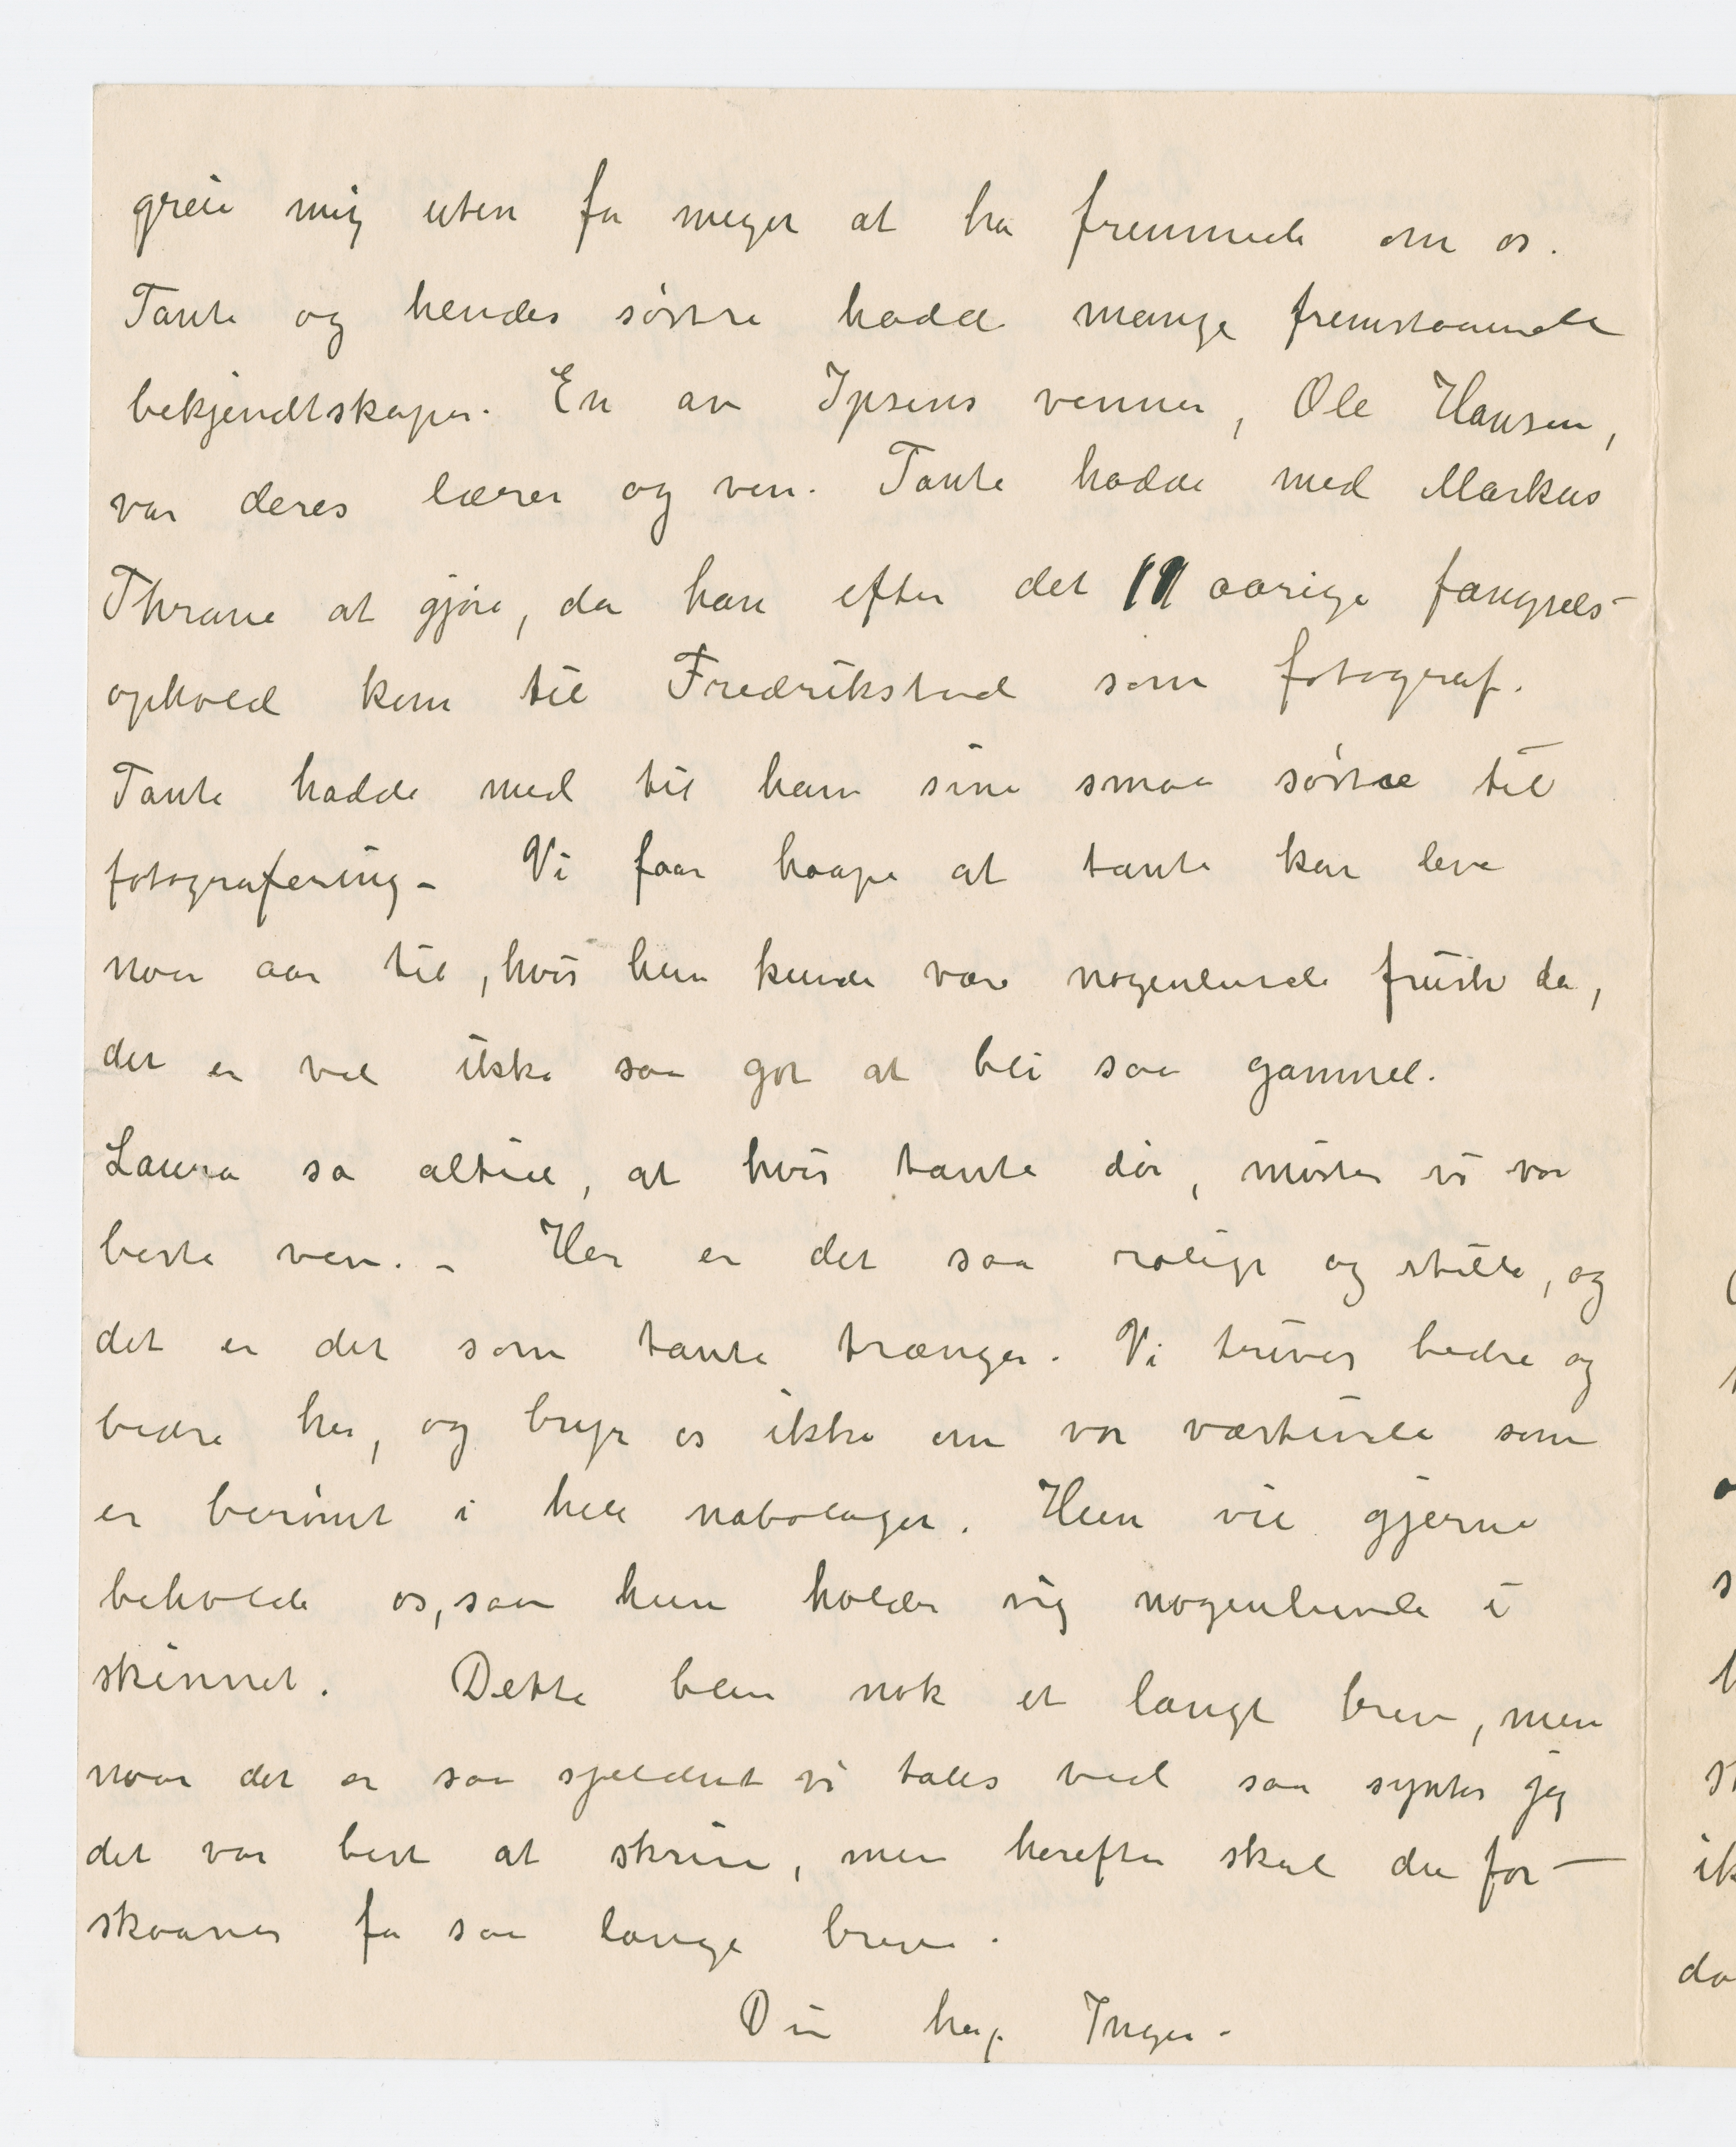 greie mig uten for meget at ha fremmede om os.
Tante og hendes søstre hadde mange fremstaaende
bekjendtskaper. En av Ipsens venner, Ole Hansen,
var deres lærer og ven. Tante hadde med Markus
Thrane at gjøre, da han efter det 11 aarige fængsels-
ophold kom til Fredrikstad som fotograf.
Tante hadde med til ham sine smaa søstre til
fotografering- Vi faar haape at tante kan leve
noen aar til, hvis hun kunde være nogenlunde frisk da,
det er vel ikke saa got at bli saa gammel.
Laura sa altid, at hvis tante dør, mister vi vor
beste ven. - Her er det saa rolige og stille, og
det er det som tante trænger. Vi trives bedre og
bedre her, og bryr os ikke om vor værtinde som
er berømt i hele nabolaget. Hun vil gjerne
beholde os, saa hun holder sig nogenlunde i
skinnet. Dette blev nok et langt brev, men
naar det er saa sjeldent vi tales ved saa syntes jeg
det var best at skrive, men herefter skal du for-
skaanes for saa lange breve.
Din heng. Inger-